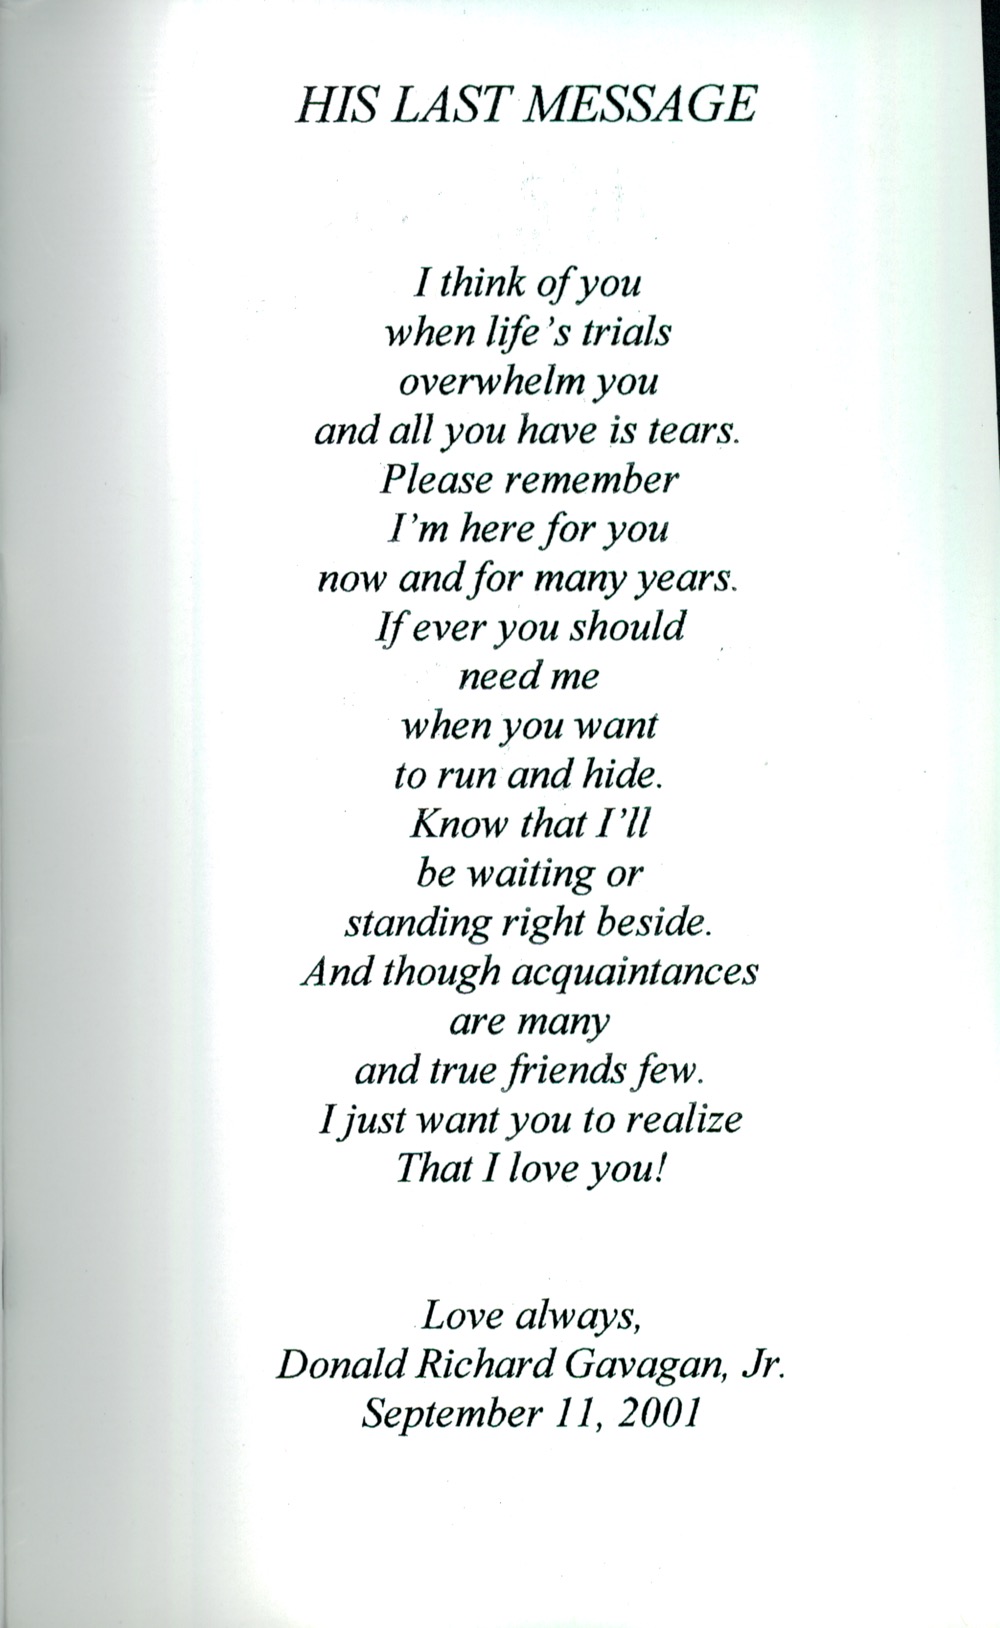 HIS LAST MESSAGE
I think of you
when life's trials
overwhelm you
and all you have is tears.
Please remember
I'm here for you
now and for many years.
If ever you should
need me
when you want
to run and hide.
Know that I'll
be waiting or
standing right beside.
And though acquaintances
are many
and true friends few.
I just want you to realize
That I love you!
Love always,
Donald Richard Gavagan, Jr.
September 11, 2001